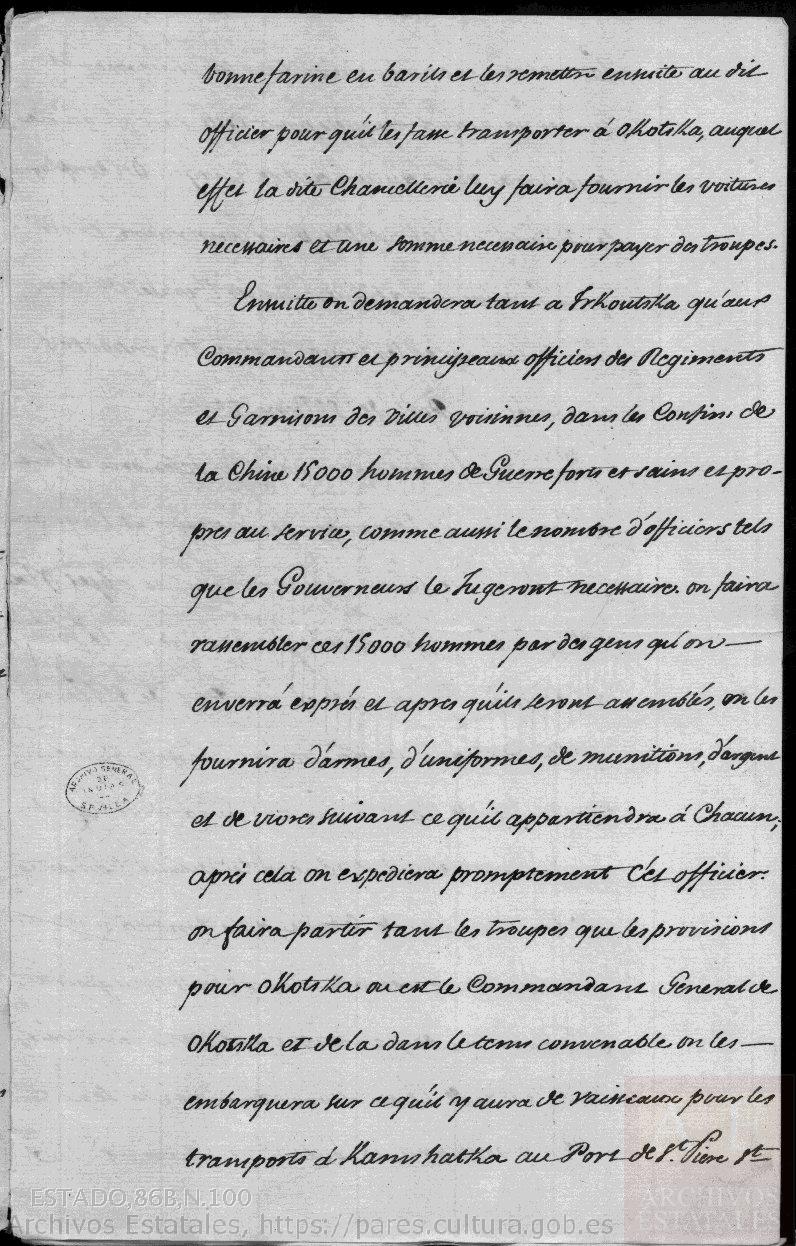 bonne farine en barils et les remettre ensuite au dit
officier pour qu'il les fasse transporter á OKotsKa, auquel
effet la dite Chancellerie luy faira fournir les voitures
necessaires et une somme necessaire pour payer des troupes.
Ensuitte on demandera tant a IrKoutsKa qu'aux
Commandants et principeaux officiers des Regiments
et Garnisons des Villes voisinnes, dans les Confins de
la Chine 15000 hommes de Guerre forts et sains et pro-
pres au service, comme aussi le nombre d'officiers tels
que les Gouverneurs le Jugeront necessaire. on faira
rassembler ces 15000 hommes par des gens qu'on —
enverrá exprés et apres qu'ils seront assemblés, on les
fournira d'armes, d'uniformes, de munitions, d'argent
et de vivres suivant ce qu'il appartiendra á Chacun;
aprés cela on expediera promptement Cét officier.
on faira partir tant les troupes que les provisions
pour OKotsKa ou est le Commandant General de
OKotsKa et de la dans le tems convenable on les —
embarquera sur ce qu'il y aura de vaisseaux pour les
transports á KamshatKa au Port de St. Piere St.
ARCHIVO GENERAL
DE
INDIAS
SEVILLA
ARCHIVOS
ESTATALES
ESTADO,86B,N.100
Archivos Estatales, https://pares.cultura.gob.es